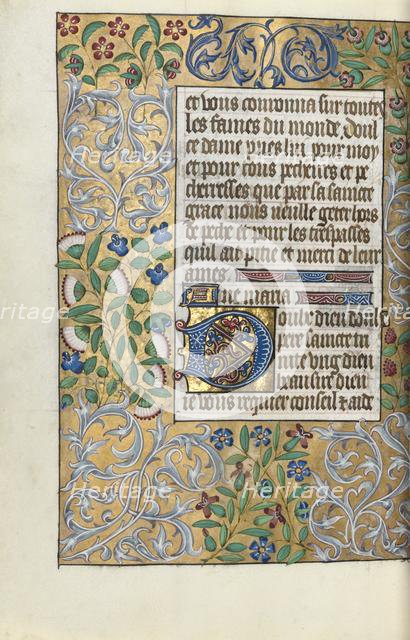 et vous couronna sur toutes
les fames du monde. doul
ce dame pries lui pour moy
et pour tous pecheurs et pe
cheresses que par sa saincte
grace nous vueille geter hors
de peche et pour les trespasses
quil ait pitie et merci de leur
ames.
Aue maria
Doulz dieu doulz
pere saincte tri
nite ung dieu
beau sire dieu
ie vous requier conseil et aide
Heritage
Heritage
Heritage
Heritage
Heritage
Images